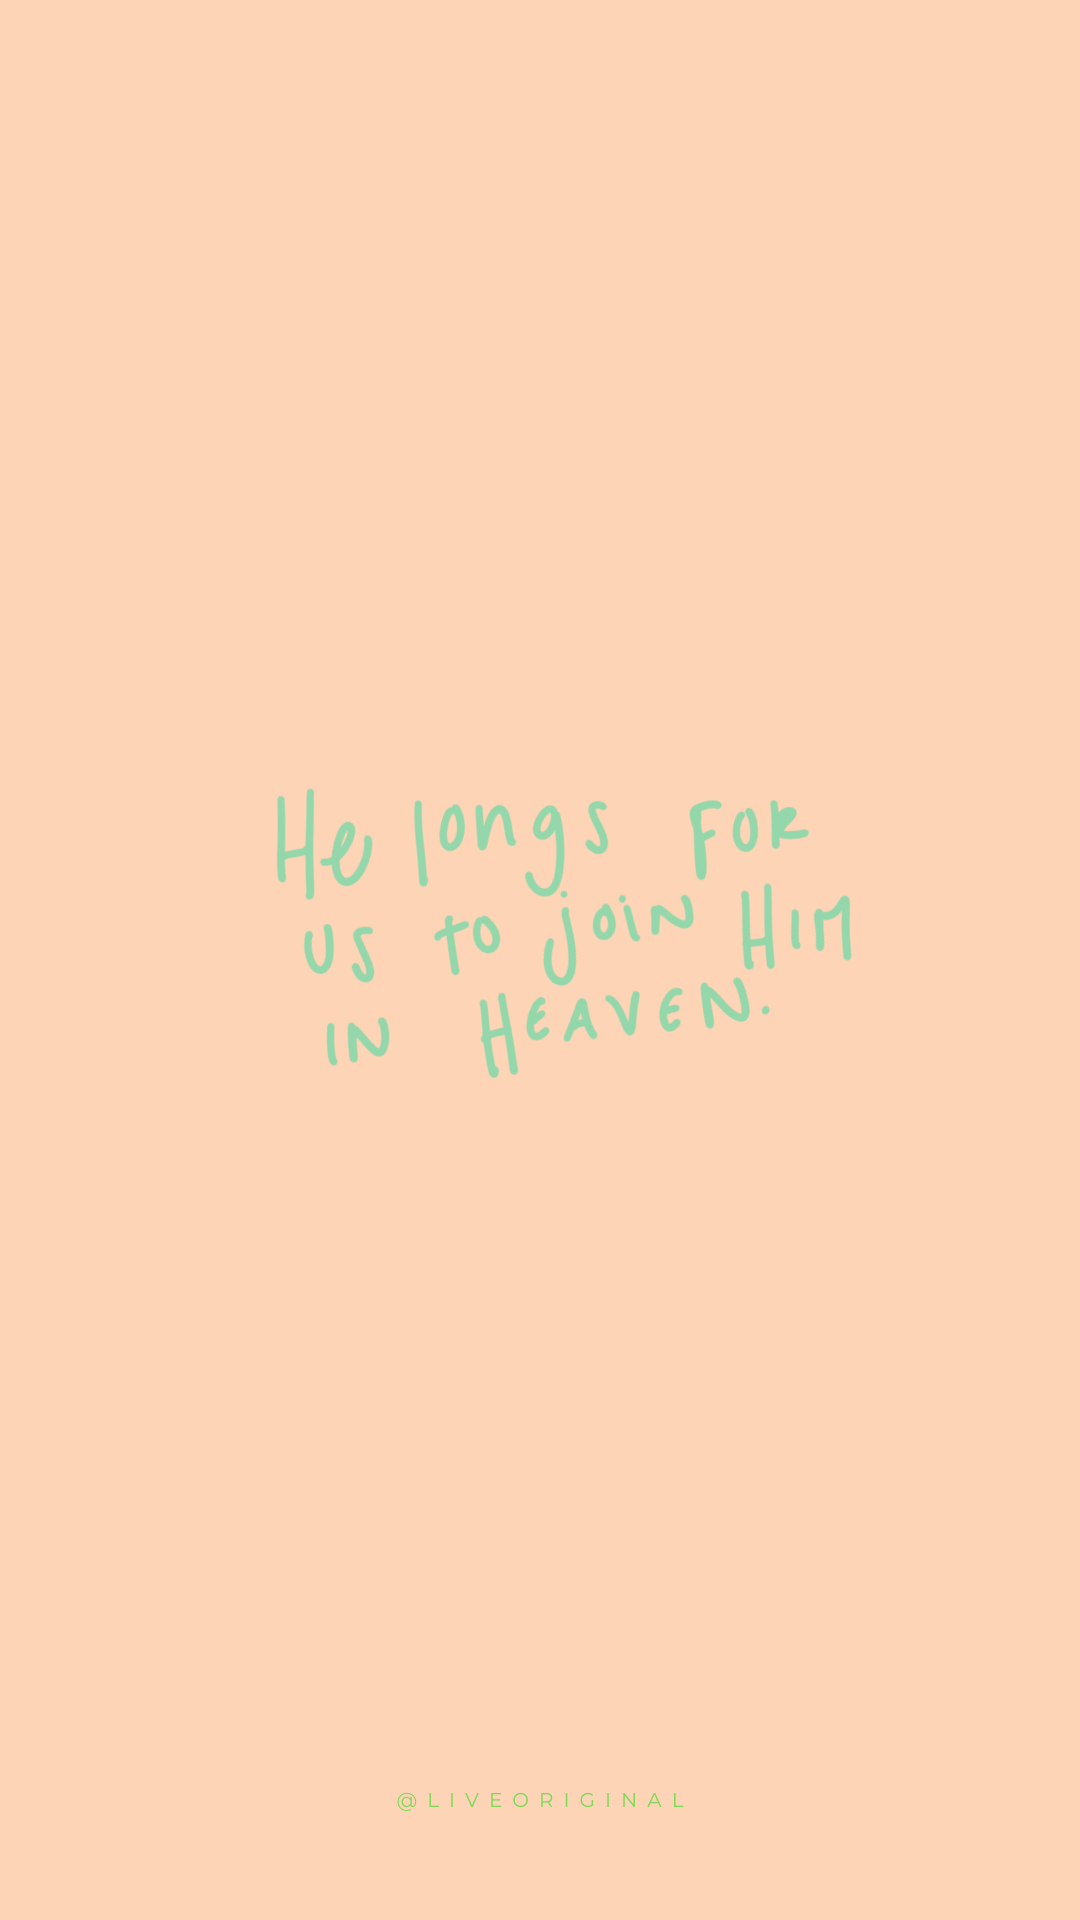 He longs for
us to join Him
in Heaven.
@LIVEORIGINAL